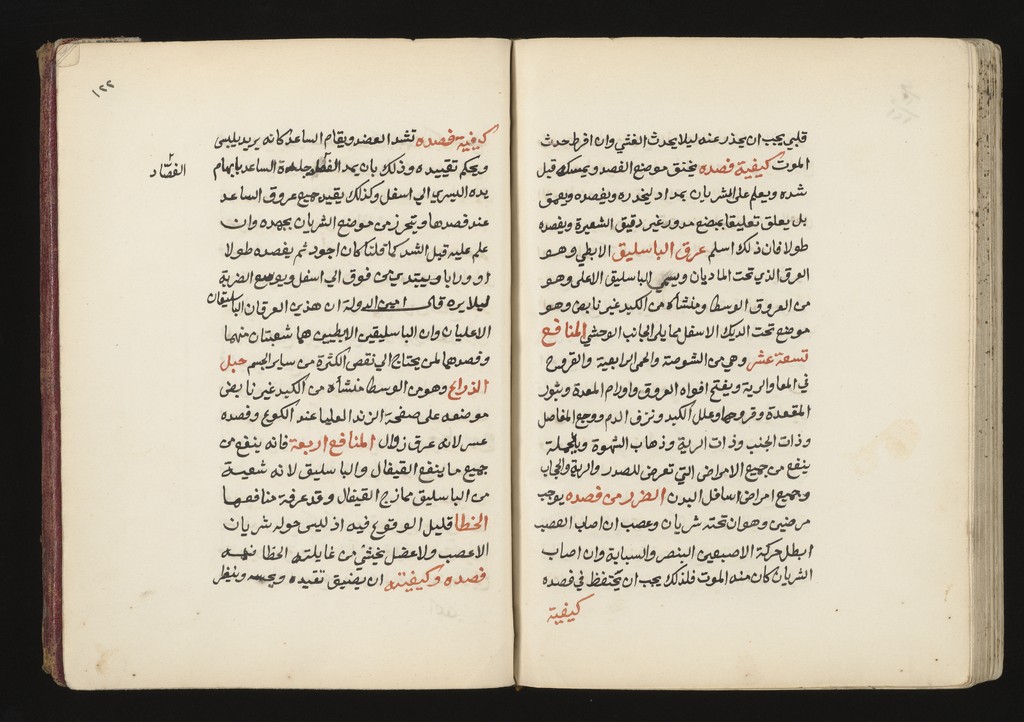 قلبي يجب ان يحذر عنه ليلا يحدث الغشي وان افرط حدث
الموت كيفية فصده يخنق موضع الفصد ويمسك قبل
شده ويعلم على الشريان بمداد ليحذره ويفصده ويعمق
بل يعلق تعليقا بمبضع مدور غير دقيق الشعيرة ويفصده
طولا فان ذلك اسلم عرق الباسليق الابطي وهو
العرق الذي تحت الماديان ويسمى الباسليق الاعلى وهو
من العروق الوسطا ومنشاه من الكبد غير نابض وهو
موضع تحت الديك الاسفل مما يلي الجانب الوحشي المنافع
تسعة عشر وهي من الشوصة والحمى الرابعية والقروح
في المعا والرية ويفتح افواه العروق واورام المعدة وبثور
المقعدة وقروحها وعلل الكبد ونزف الدم ووجع المفاصل
وذات الجنب وذات الرية وذهاب الشهوة وبالجملة
ينفع من جميع الامراض التي تعرض للصدر والرية والحجاب
وجميع امراض اسافل البدن الضرر من فصده يوجب
مرضين وهو ان تحته شريان وعصب ان اصاب العصب
ابطل حركة الاصبعين البنصر والسبابة وان اصاب
الشريان كان منه الموت فلذلك يجب ان يتحفظ في فصده
كيفية
١٢٢
كيفية فصده تشد العضد ويقام الساعد كانه يريد يلبس
ويحكم تقييده وذلك بان يمد جلدة الساعد بابهام
الفصاد
يده اليسرى الي اسفل وكذلك يقيد جميع عروق الساعد
عند فصدها ويتحرز من موضع الشريان بجهده وان
علم عليه قبل الشد كما قلنا كان اجود ثم يفصده طولا
او ورابا ويبتدي من فوق الي اسفل ويوسع الضربة
ليلا يره قال امين الدولة ان هذين العرقان الباسليقان
الاعليان وان الباسليقين الابطيين هما شعبتان منهما
وفصدهما لمن يحتاج الي نقص الكثرة من ساير الجسم حبل
الذراع وهو من الوسطا منشاه من الكبد غير نابض
موضعه على صفحة الزند العليا عند الكوع وفصده
عسر لانه عرق زوال المنافع اربعة فانه ينفع من
جميع ما ينفع القيفال والباسليق لانه شعبة
من الباسليق ممازج القيفال وقد عرفة منافعهما
الخطا قليل الوقوع فيه اذ ليس حوله شريان
الا عصب ولا عضل يخشى من غايلته الخطا نهه
فصده وكيفيته ان يضيق تقيده ويجسه وينظر